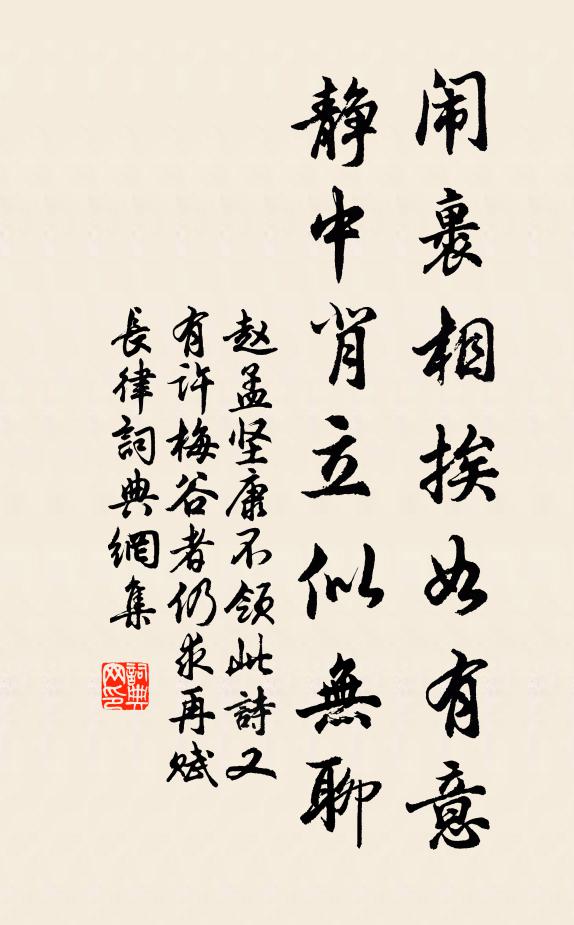 闹裏相挨如有意
静中背立似無聊
赵孟坚康不领此詩又
有许梅谷者仍求再赋
長律詞典網集
詞典網印